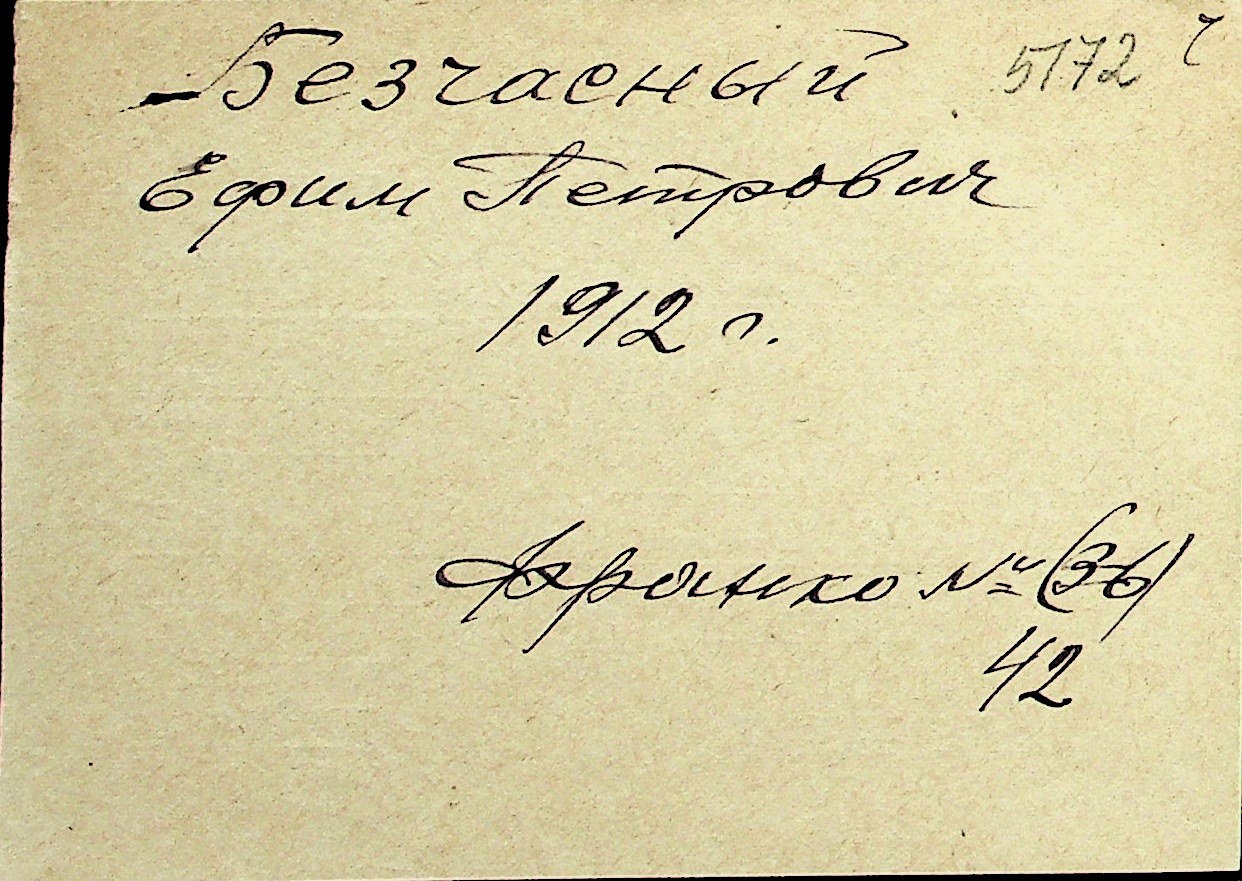 Безчасный 5172
Ефим Петрович
1912 г.
Франко № (36)
42